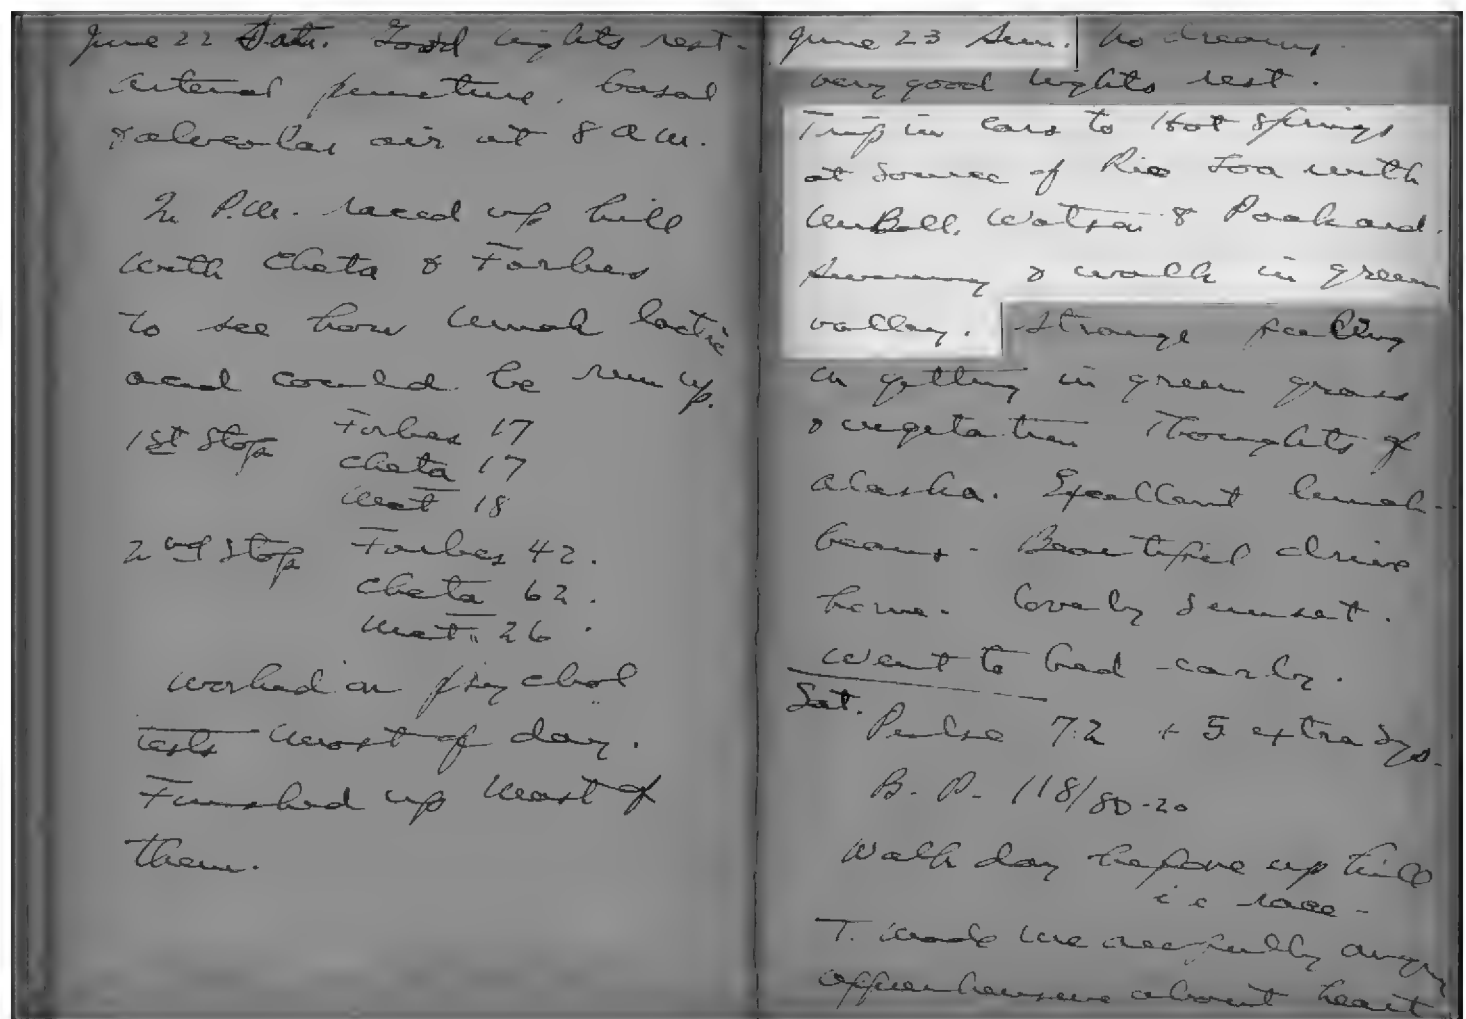 June 22 Sat. Good nights rest-
Arterial puncture, basal
& alveolar air at 8 a.m.
In P.M. raced up hill
with Cheta & Forbes
to see how much lactic
acid could be run up.
1st Stop Forbes 17
Cheta 17
McF 18
2nd Stop Forbes 42.
Cheta 62.
26.
Worked on psychol
tests most of day.
Finished up most of
them.
June 23 Sun. No dreams.
very good nights rest.
Trip in cars to Hot Springs
at source of Rio Loa with
Watson & Packard.
Swimming & walk in green
valley. Strange feeling
on getting in green grass
& vegetation Thoughts of
Alaska. Excellent lunch-
beans. Beautiful drive
home. Lovely sunset.
Went to bed early.
Sat.
Pulse 72 + 5 extra sys.
B.P. 118/80-20
Walk day before up hill
i e race-
T. made me awfully angry
about heart